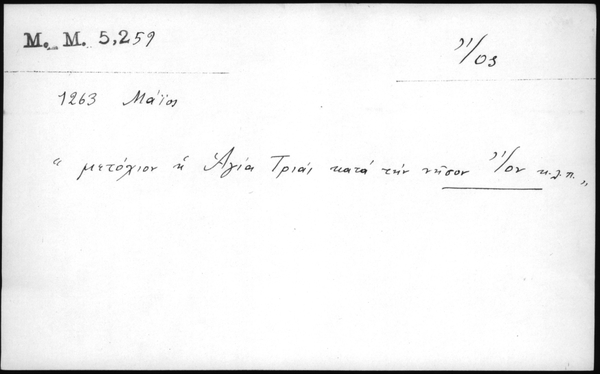 M. M. 5,259
Ἴος
1263 Μάϊος
“ μετόχιον ἡ Ἁγία Τριὰς κατὰ τὴν νῆσον Ἴον κ.λ.π. „